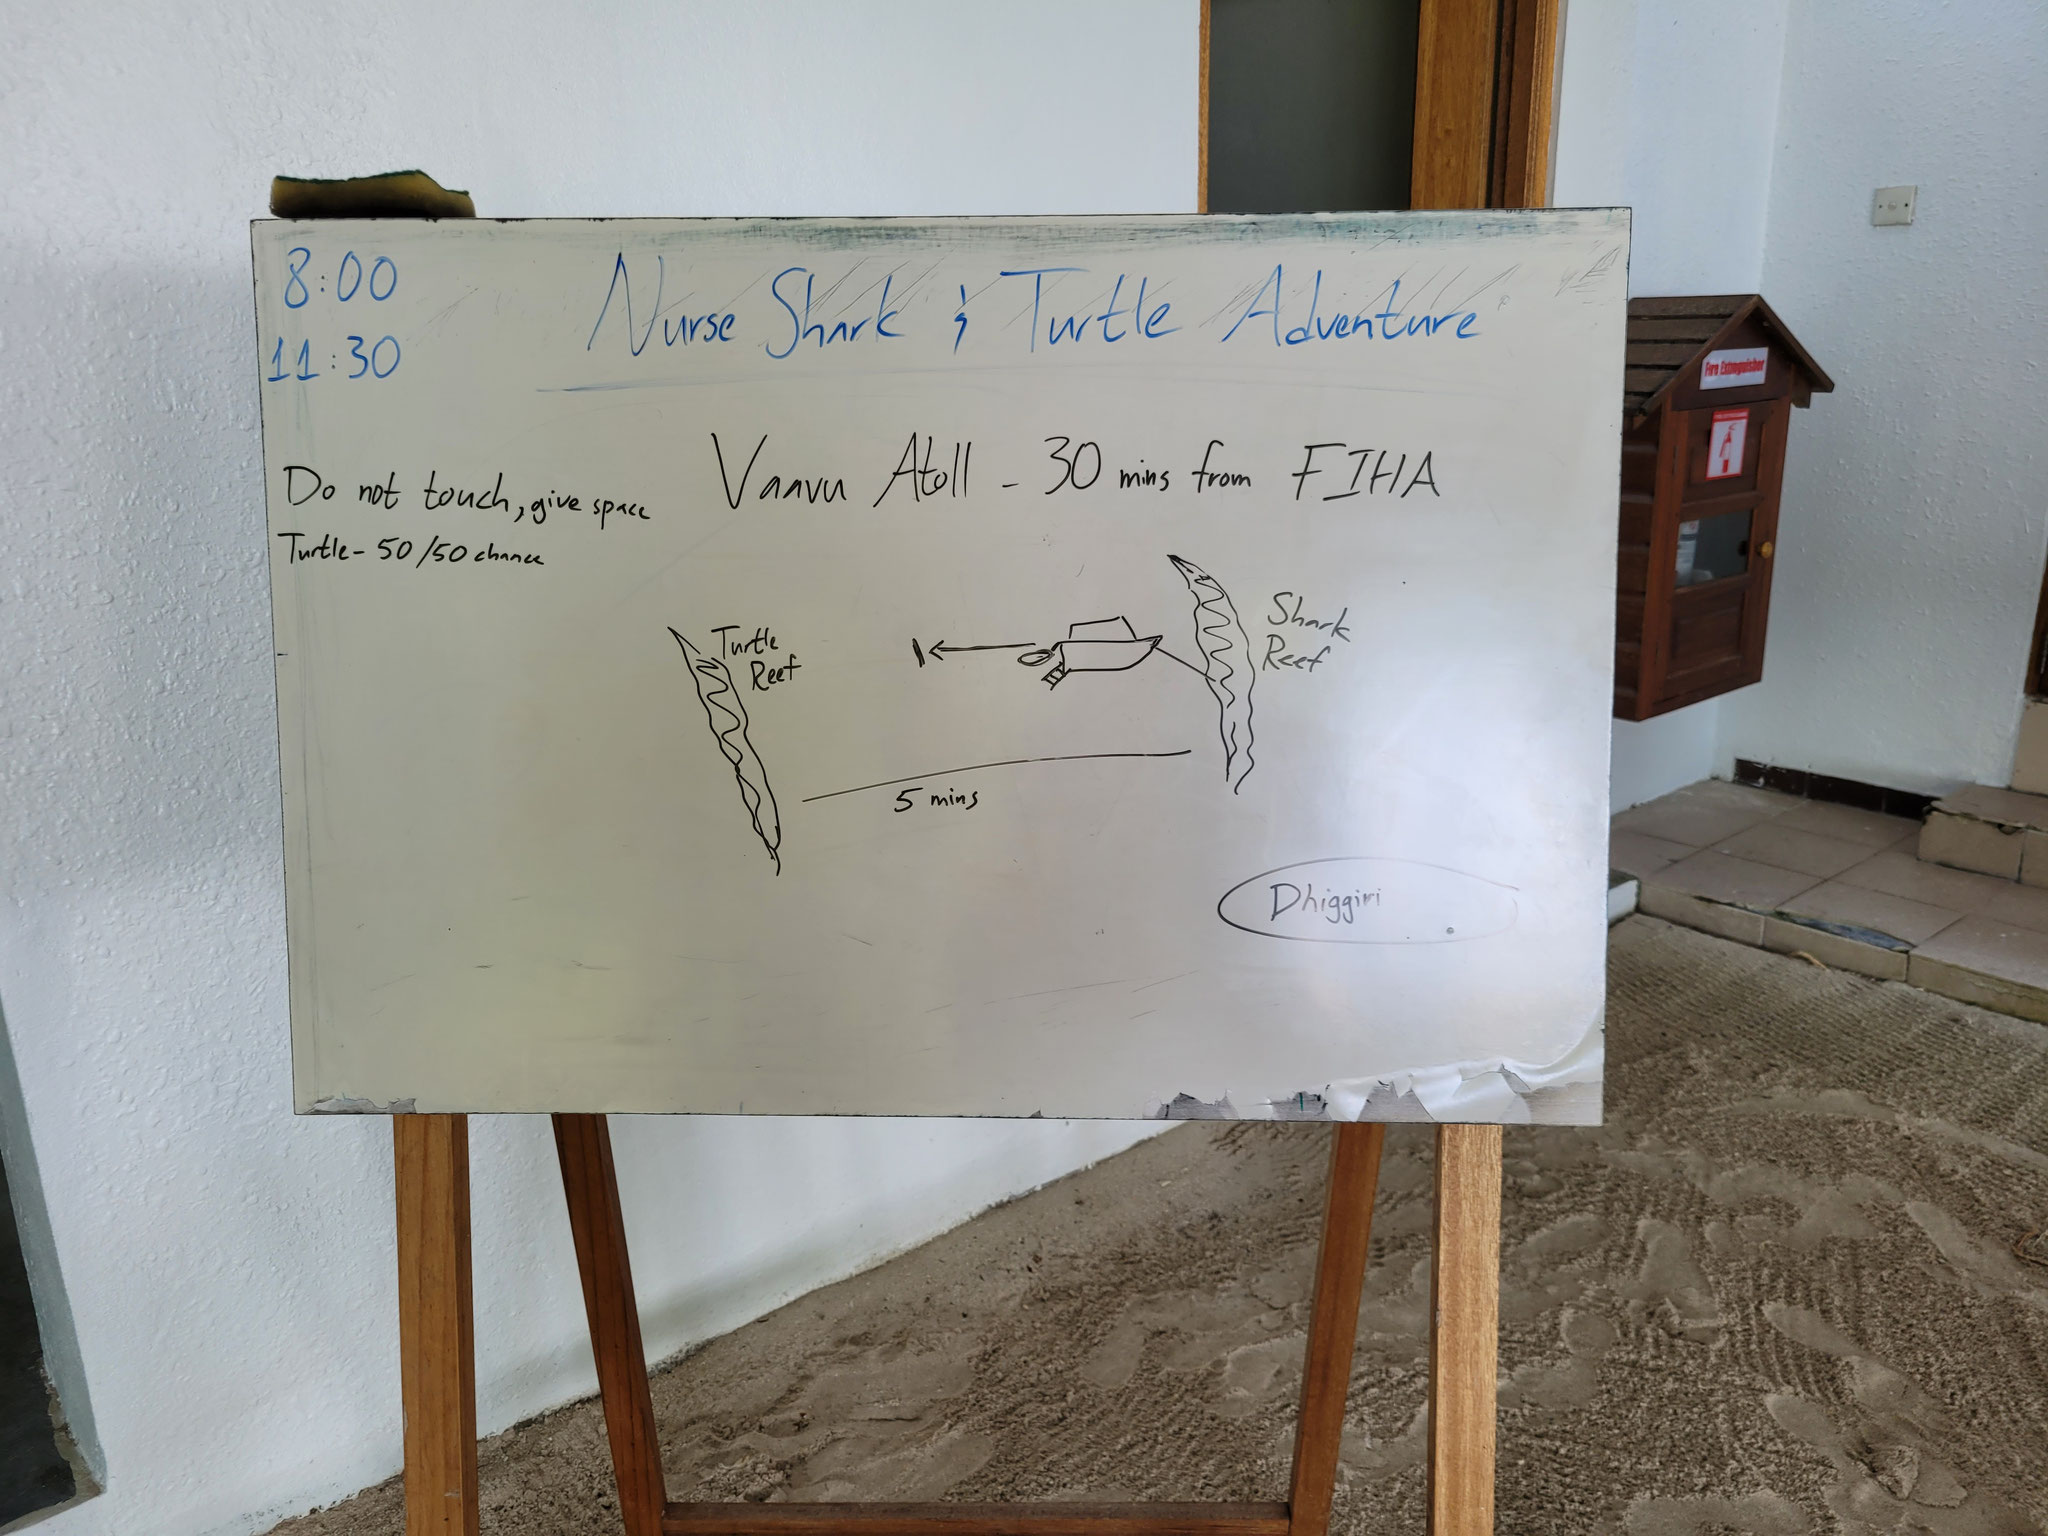 8:00
11:30
Nurse Shark & Turtle Adventure
Vaavu Atoll - 30 mins from FIHA
Do not touch, give space
Turtle - 50/50 chance
Turtle
Reef
Shark
Reef
5 mins
Dhiggiri
Fire Extinguisher